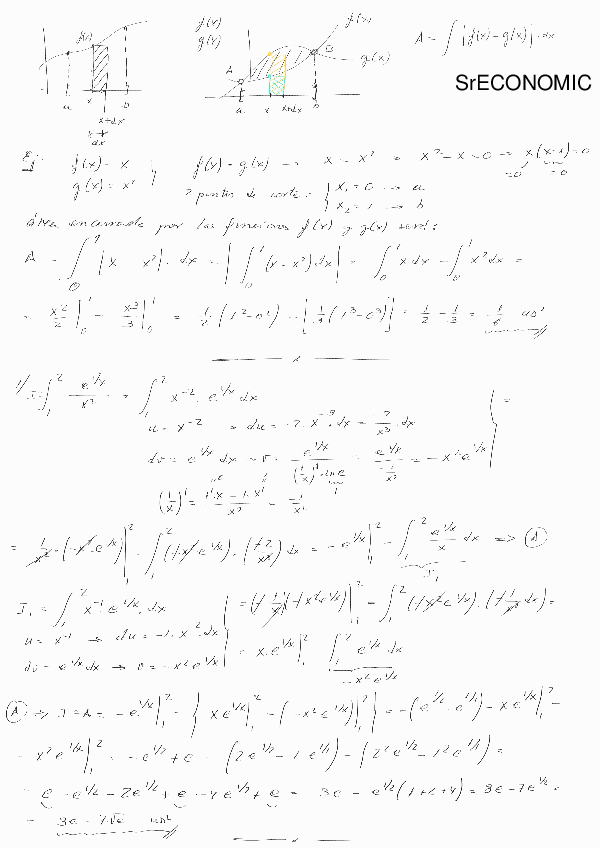 f(x)
a
x
b
x+dx
dx
f(x)
g(x)
A
B
f(x)
g(x)
a x x+dx b
A = ∫ |f(x) - g(x)| · dx
SrECONOMIC
Ej: f(x) = x
g(x) = x²
f(x) = g(x) → x = x² = x² - x = 0 → x(x-1) = 0
=0 =0
2 puntos de corte: { x₁ = 0 → a
x₂ = 1 → b
área encerrada por las funciones f(x) y g(x) será:
A = ∫₀¹ |x - x²| · dx = |∫₀¹ (x - x²) · dx| = ∫₀¹ x dx - ∫₀¹ x² dx =
= x²/2 |₀¹ - x³/3 |₀¹ = 1/2 · (1² - 0²) - [1/3 (1³ - 0³)] = 1/2 - 1/3 = 1/6 us²
1/ I = ∫₁² e^(1/x)/x² = ∫₁² x⁻² · e^(1/x) dx
u = x⁻² → du = -2 · x⁻³ · dx = -2/x³ · dx
dv = e^(1/x) dx → v = = -x² e^(1/x)
(1/x)' = = -1/x²
= 1/x² · (-x² · e^(1/x)) |₁² - ∫₁² (+x² e^(1/x)) · (+2/x³) dx = -e^(1/x) |₁² - ∫₁² e^(1/x)/x dx => A
I₁
I₁ = ∫₁² x⁻¹ · e^(1/x) · dx
u = x⁻¹ → du = -1 · x⁻² · dx
dv = e^(1/x) dx → v = -x² e^(1/x)
= x · e^(1/x) |₁² ∫₁² e^(1/x) dx
-x² e^(1/x)
A => I = A = -e^(1/x) |₁² - { x e^(1/x) |₁² - (-x² e^(1/x)) |₁² } = -(e^(1/2) - e^(1/1)) - x e^(1/x) |₁² -
- x² e^(1/x) |₁² = -e^(1/2) + e - (2e^(1/2) - 1 e^(1/1)) - (2² e^(1/2) - 1² e^(1/1)) =
= e - e^(1/2) - 2e^(1/2) + e - 4e^(1/2) + e = 3e - e^(1/2) (1+2+4) = 3e - 7e^(1/2) =
= 3e - 7√e us²